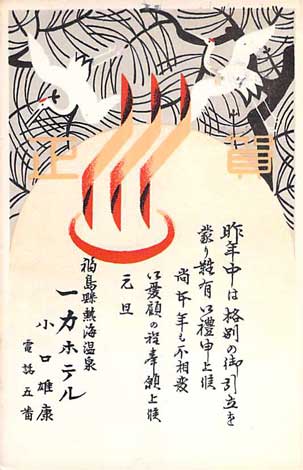 賀正
昨年中は格別の御引立を
蒙り難有御禮申上候
尚本年も不相変
御愛顧の程奉願上候
元旦
福島縣熱海温泉
一力ホテル
小口雄康
電話五番